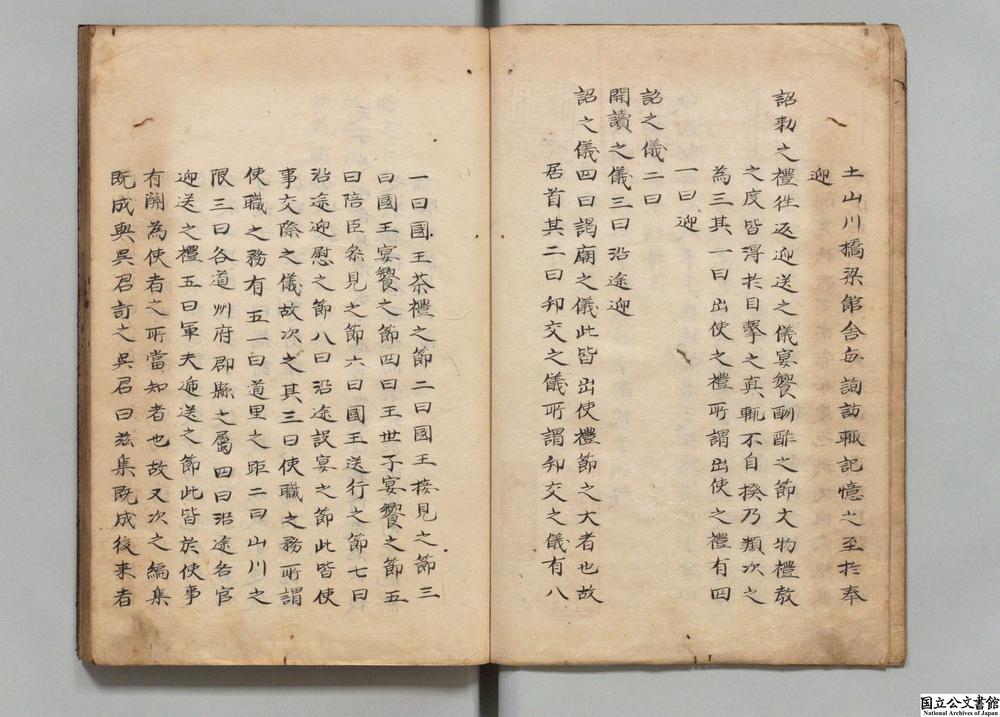 土山川橋梁館舍每詢訪輒記憶之至於奉
迎
詔勅之禮徃返迎送之儀宴饗酬酢之節文物禮敎
之度皆淂扵目擊之真輒不自揆乃類次之
為三其一曰出使之禮所謂出使之禮有四
一曰迎
詔之儀二曰
開讀之儀三曰沿途迎
詔之儀四曰謁廟之儀此皆出使禮節之大者也故
居首其二曰知交之儀所謂知交之儀有八
一曰國王茶禮之節二曰國王接見之節三
曰國王宴饗之節四曰王世子宴饗之節五
曰陪臣叅見之節六曰國王送行之節七曰
沿途迎慰之節八曰沿途設宴之節此皆使
事交際之儀故次之其三曰使職之務所謂
使職之務有五一曰道里之距二曰山川之
限三曰各道州府郡縣之屬四曰沿途各官
迎送之禮五曰軍夫遞送之節此皆於使事
有關為使者之所當知者也故又次之編集
既成與吳君訂之吳君曰玆集既成後来者
国立公文書館
National Archives of Japan